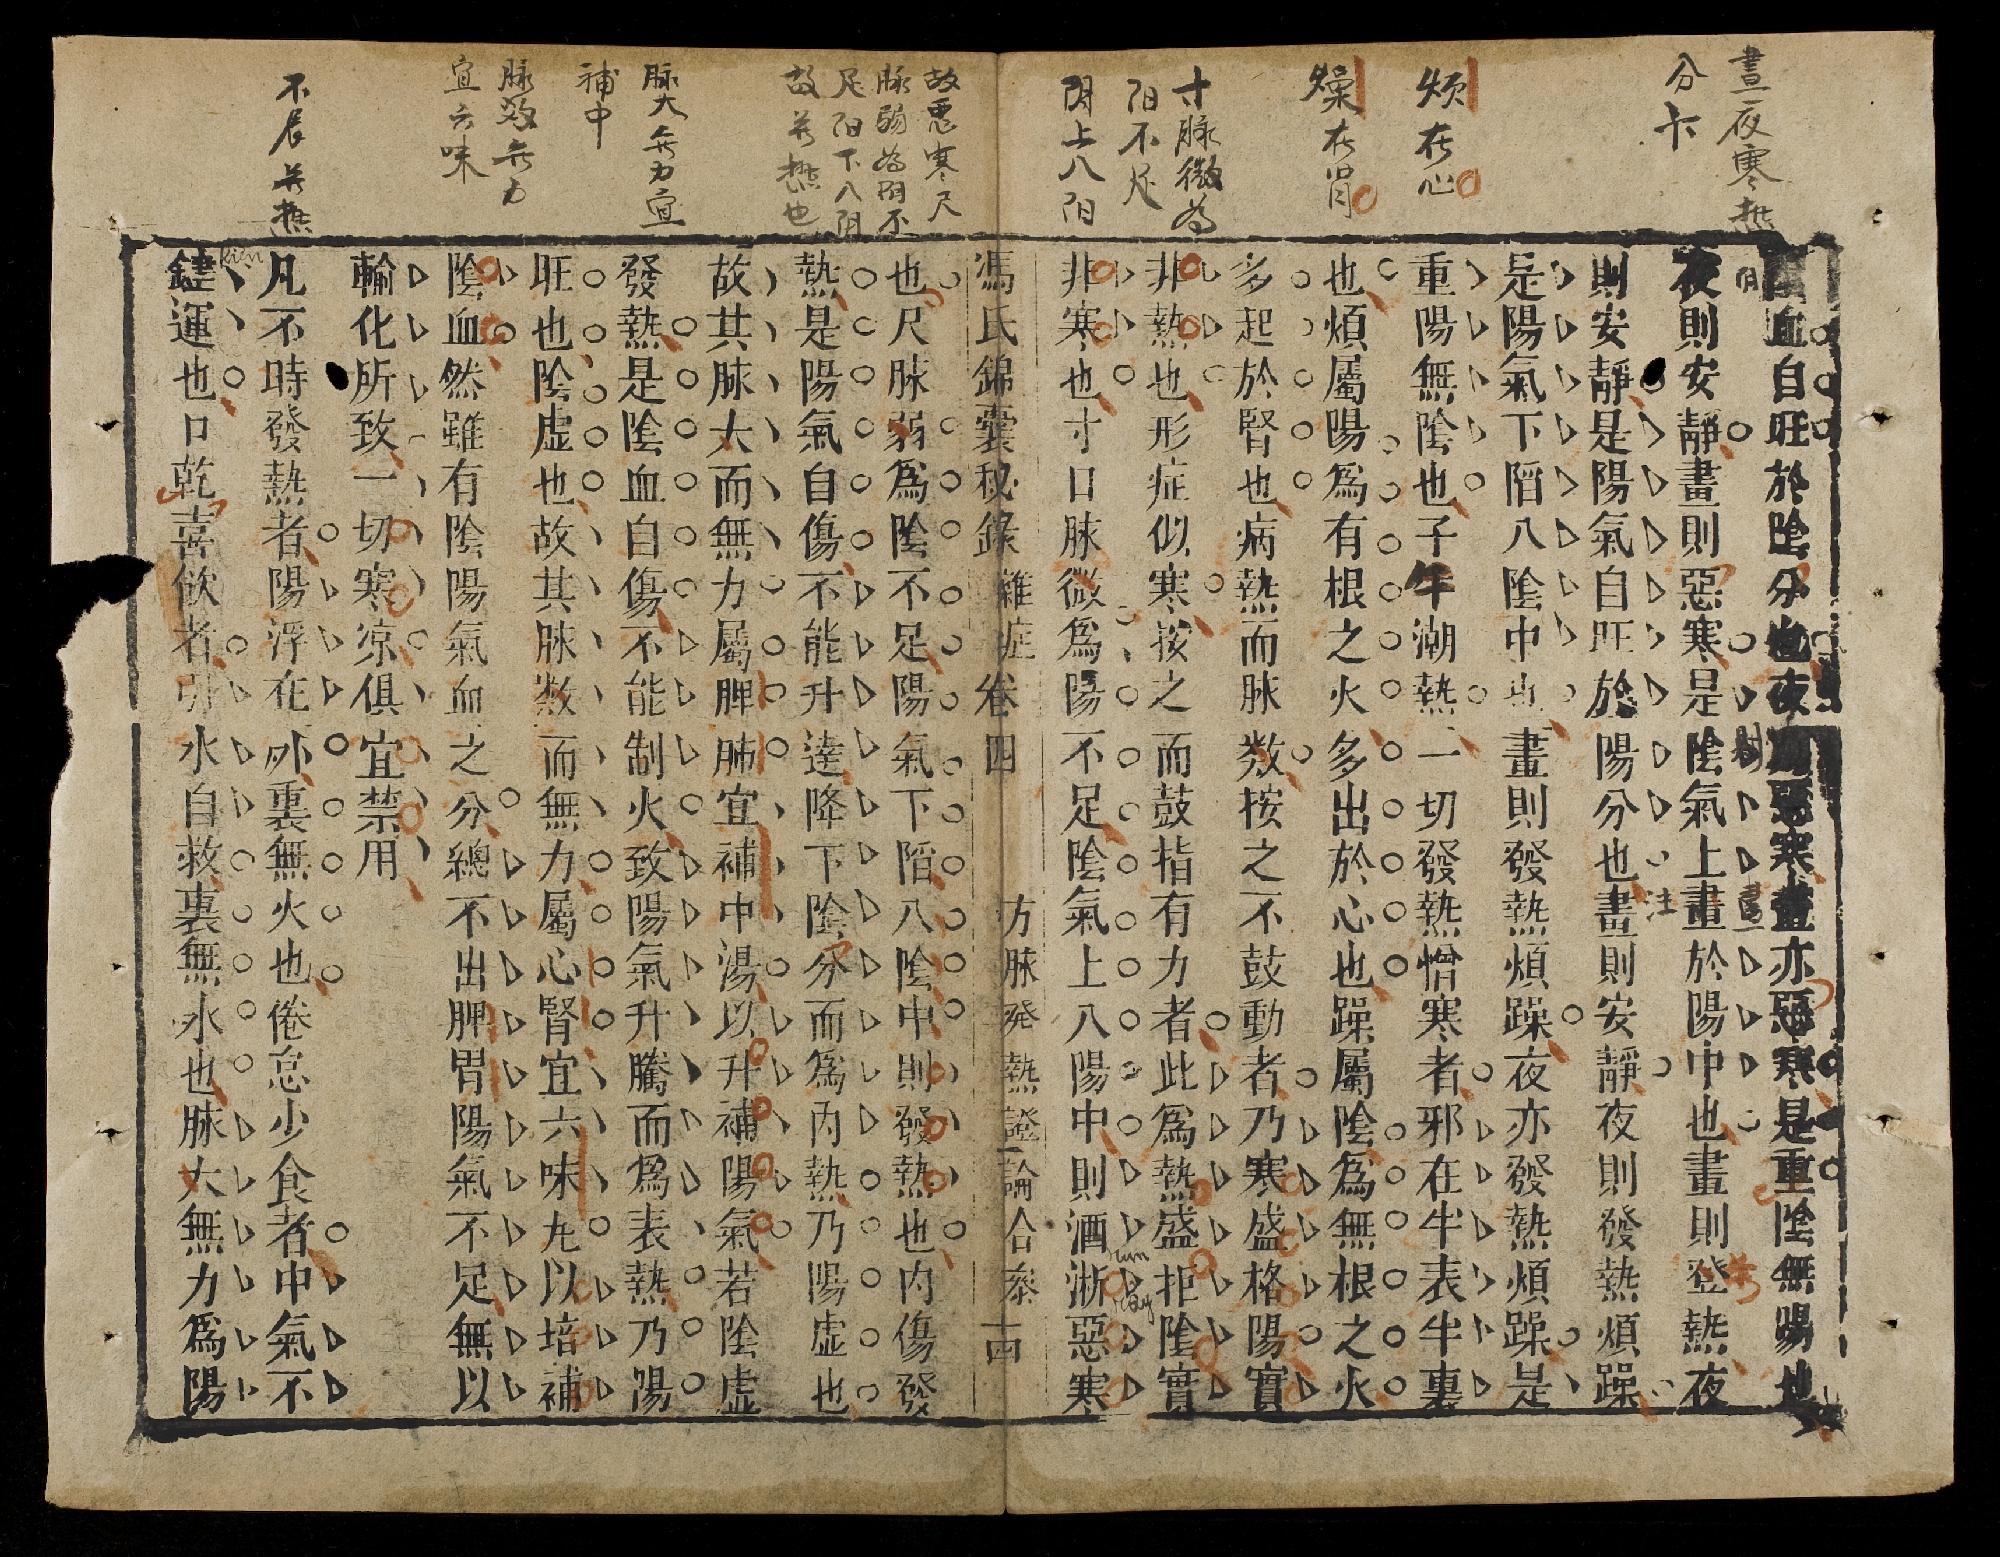 晝夜寒熱
分卞
煩在心
燥在腎
寸脉微為
阳不足
阴上入阳
故惡寒尺
脉弱為阴不
足阳下入阴
故发熱也
脉大無力宜
補中
脉数無力
宜六味
不辰发熱
血自旺於陰分也夜則惡寒晝亦惡寒是重陰無陽也
夜則安靜晝則惡寒是陰氣上晝於陽中也晝則發熱夜
則安靜是陽氣自旺於陽分也晝則安靜夜則發熱煩躁
是陽氣下陷入陰中也晝則發熱煩躁夜亦發熱煩躁是
重陽無陰也子午潮熱一切發熱憎寒者邪在半表半裏
也煩屬陽爲有根之火多出於心也躁屬陰爲無根之火
多起於腎也病熱而脉数按之不鼓動者乃寒盛格陽實
非熱也形症似寒按之而鼓指有力者此爲熱盛拒陰實
非寒也寸口脉微爲陽不足陰氣上入陽中則洒淅惡寒
馮氏錦囊秘錄 雜症卷四 方脉発熱證論合叅 十四
也尺脉弱爲陰不足陽氣下陷入陰中則發熱也内傷發
熱是陽氣自傷不能升達降下陰分而爲内熱乃陽虚也
故其脉大而無力屬脾肺宜補中湯以升補陽氣若陰虚
發熱是陰血自傷不能制火致陽氣升騰而爲表熱乃陽
旺也陰虚也故其脉数而無力屬心腎宜六味丸以培補
陰血然雖有陰陽氣血之分總不出脾胃陽氣不足無以
輸化所致一切寒凉俱宜禁用
凡不時發熱者陽浮在外裏無火也倦怠少食者中氣不
kiện
鍵運也口乾喜飲者引水自救裏無水也脉大無力爲陽